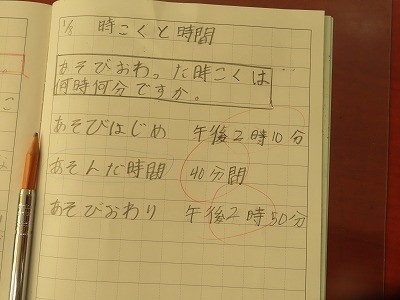 1/5 時こくと時間
あそびおわった時こくは
何時何分ですか。
あそびはじめ 午後2時10分
あそんだ時間 40分間
あそびおわり 午後2時50分